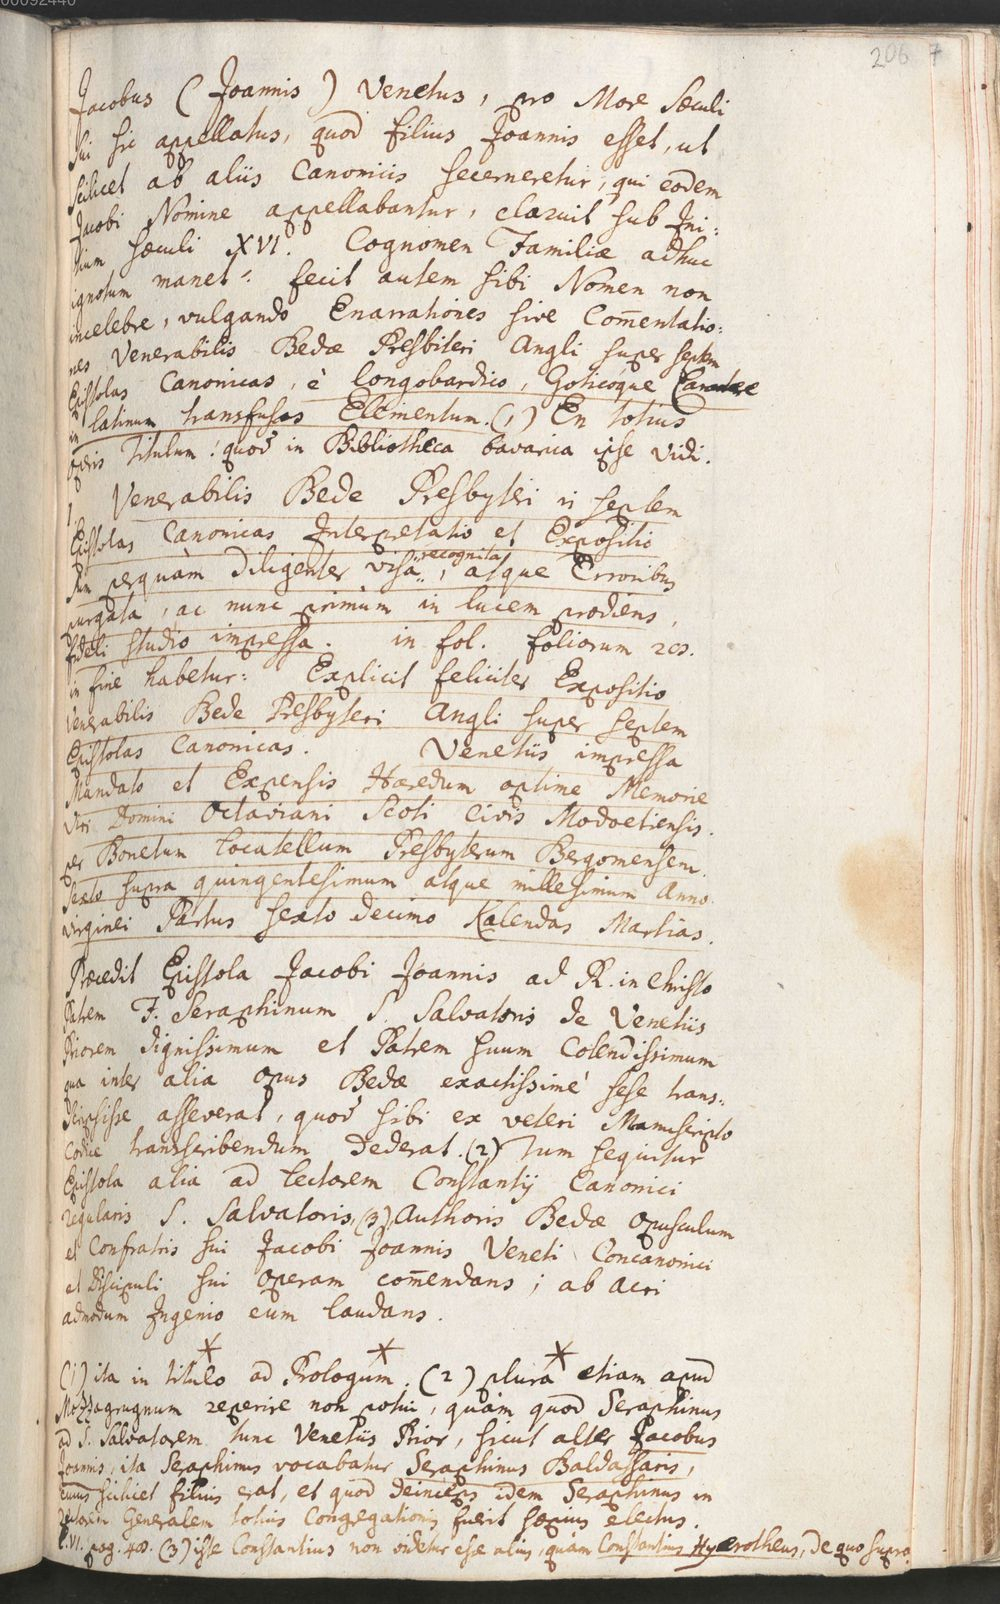 206 7
Jacobus (Joannis) Venetus, pro More Sæculi
sui sic appellatus, quod filius Joannis esset, ut
scilicet ab aliis Canonicis secerneretur, qui eodem
Jacobi Nomine appellabantur, claruit sub Ini:
tium sæculi XVI. Cognomen Familiæ adhuc
ignotum manet: fecit autem sibi Nomen non
incelebre, vulgando Enarrationes sive Com̄entatio:
nes Venerabilis Bedæ Presbiteri Angli super septem
Epistolas Canonicas, è longobardico, Goticoque
in latinum transfusas Elementum. (1) En totius
operis Titulum: quod in Bibliotheca bavarica ipse vidi.
Venerabilis Bede Presbyteri in septem
Epistolas Canonicas Interpretatio et Expositio
perquàm diligenter visa, recognita, atque Erroribus
purgata, ac nunc primùm in lucem prodiens,
fideli studio impressa. in fol. foliorum
in fine habetur: Explicit feliciter Expositio
Venerabilis Bede Presbyteri Angli super septem
Epistolas Canonicas. Venetiis impressa
Mandato et Expensis Hæredum optime Memorie
Viri Domini Octaviani Scoti Civis Modoetiensis.
per Bonetum Locatellum Presbyterum Bergomensem.
Sexto supra quingentesimum atque millesimum Anno
virginei Partus sexto decimo Kalendas Martias.
Præcedit Epistola Jacobi Joannis ad R. in Christo
Patrem F. Seraphinum S. Salvatoris de Venetiis
Priorem dignissimum et Patrem suum Colendissimum
qua inter alia opus Bedæ exactissimè sese trans:
scripsisse asseverat, quod sibi ex veteri Manuscripto
Codice transcribendum dederat. (2) Tum sequitur
Epistola alia ad Lectorem Constantij Canonici
regularis S. Salvatoris, (3) Authoris Bedæ opusculum
et Confratris sui Jacobi Joannis Veneti Concanonici
et Discipuli sui operam com̄endans; ab acri
admodum Ingenio eum laudans.
* * *
(1) ita in titulo ad Prologum. (2) plura etiam apud
Mozzagrugnum reperire non potui, quàm quod Seraphinus
ad S. Salvatorem tunc Venetiis Prior, sicut alter Jacobus
Joannis, ita Seraphinus vocabatur Seraphinus Baldassaris,
cuius scilicet filius erat, et quod deinceps idem Seraphinus in
Rectorem Generalem totius Congregationis fuerit sæpius electus.
L. VI. pag. (3) iste Constantius non videtur esse alius, quàm Constantius Hyerotheus, de quo supra